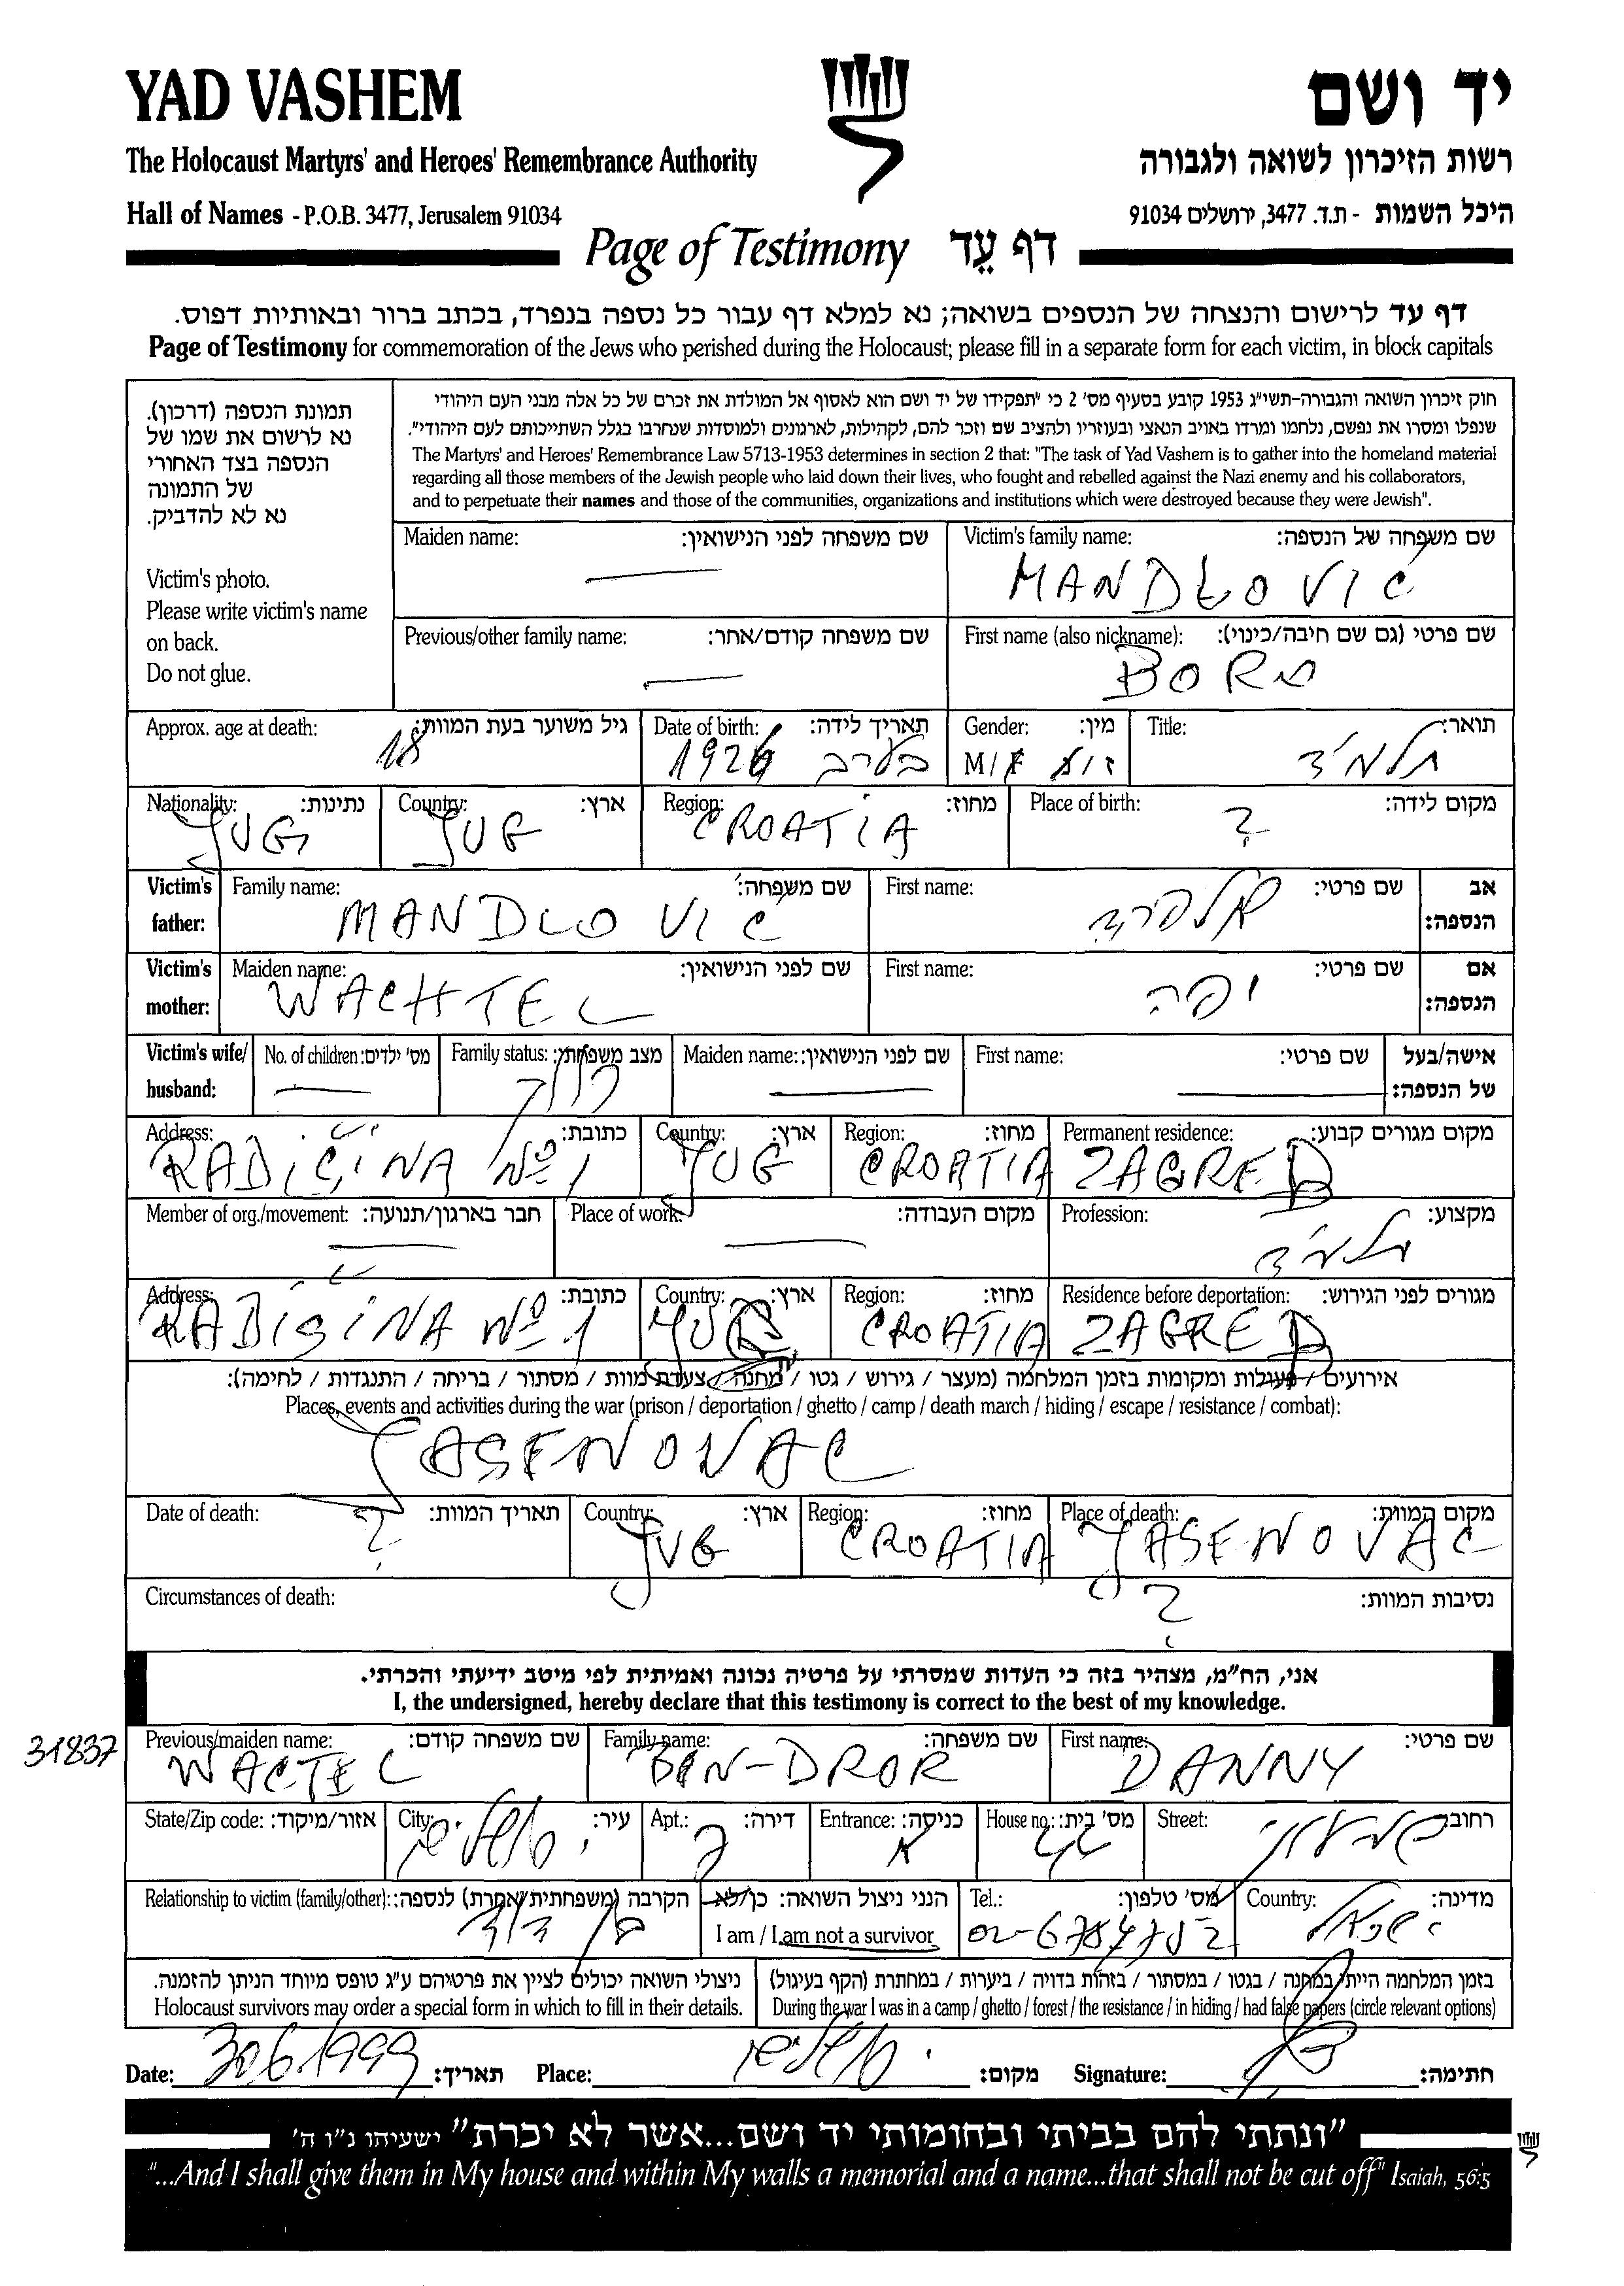 YAD VASHEM
יד ושם
The Holocaust Martyrs' and Heroes' Remembrance Authority
רשות הזיכרון לשואה ולגבורה
Hall of Names - P.O.B. 3477, Jerusalem 91034
היכל השמות - ת.ד. 3477, ירושלים 91034
Page of Testimony דף עֵד
דף עד לרישום והנצחה של הנספים בשואה; נא למלא דף עבור כל נספה בנפרד, בכתב ברור ובאותיות דפוס.
Page of Testimony for commemoration of the Jews who perished during the Holocaust; please fill in a separate form for each victim, in block capitals
תמונת הנספה (דרכון).
נא לרשום את שמו של
הנספה בצד האחורי
של התמונה
נא לא להדביק.
Victim's photo.
Please write victim's name
on back.
Do not glue.
חוק זיכרון השואה והגבורה-תשי"ג 1953 קובע בסעיף מס' 2 כי "תפקידו של יד ושם הוא לאסוף אל המולדת את זכרם של כל אלה מבני העם היהודי
שנפלו ומסרו את נפשם, נלחמו ומרדו באויב הנאצי ובעוזריו ולהציב שם וזכר להם, לקהילות, לארגונים ולמוסדות שנחרבו בגלל השתייכותם לעם היהודי".
The Martyrs' and Heroes' Remembrance Law 5713-1953 determines in section 2 that: "The task of Yad Vashem is to gather into the homeland material
regarding all those members of the Jewish people who laid down their lives, who fought and rebelled against the Nazi enemy and his collaborators,
and to perpetuate their names and those of the communities, organizations and institutions which were destroyed because they were Jewish".
Maiden name: שם משפחה לפני הנישואין: —
Victim's family name: שם משפחה של הנספה:
MANDLOVIĆ
Previous/other family name: שם משפחה קודם/אחר: —
First name (also nickname): שם פרטי (גם שם חיבה/כינוי):
BORO
Approx. age at death: גיל משוער בעת המוות: 18
Date of birth: תאריך לידה: 1926 בערב
Gender: מין: M/F ז/נ
Title: תואר: תלמיד
Nationality: נתינות: JUG
Country: ארץ: JUG
Region: מחוז: CROATIA
Place of birth: מקום לידה: ?
Victim's father: Family name: שם משפחה: MANDLOVIĆ
First name: שם פרטי: אלפרד אב הנספה:
Victim's mother: Maiden name: שם לפני הנישואין: WACHTEL
First name: שם פרטי: יפה אם הנספה:
Victim's wife/husband: No. of children: מס' ילדים: —
Family status: מצב משפחתי: רווק
Maiden name: שם לפני הנישואין: —
First name: שם פרטי: — אישה/בעל של הנספה:
Address: כתובת: RADIŠINA No 1
Country: ארץ: JUG
Region: מחוז: CROATIA
Permanent residence: מקום מגורים קבוע: ZAGREB
Member of org./movement: חבר בארגון/תנועה: —
Place of work: מקום העבודה: —
Profession: מקצוע: תלמיד
Address: כתובת: RADIŠINA No 1
Country: ארץ: JUG
Region: מחוז: CROATIA
Residence before deportation: מגורים לפני הגירוש: ZAGREB
אירועים / פעולות ומקומות בזמן המלחמה (מעצר / גירוש / גטו / מחנה / צעדת מוות / מסתור / בריחה / התנגדות / לחימה):
Places, events and activities during the war (prison / deportation / ghetto / camp / death march / hiding / escape / resistance / combat):
JASENOVAC
Date of death: תאריך המוות: ?
Country: ארץ: JUG
Region: מחוז: CROATIA
Place of death: מקום המוות: JASENOVAC
Circumstances of death: נסיבות המוות: ?
אני, הח"מ, מצהיר בזה כי העדות שמסרתי על פרטיה נכונה ואמיתית לפי מיטב ידיעתי והכרתי.
I, the undersigned, hereby declare that this testimony is correct to the best of my knowledge.
31837
Previous/maiden name: שם משפחה קודם: WACTEL
Family name: שם משפחה: BEN-DROR
First name: שם פרטי: DANNY
State/Zip code: אזור/מיקוד:
City: עיר: ירושלים
Apt.: דירה:
Entrance: כניסה: א
House no.: מס' בית: 44
Street: רחוב:
Relationship to victim (family/other): הקרבה (משפחתית/אחרת) לנספה: בן דוד
הנני ניצול השואה: כן/לא
I am / I am not a survivor
Tel.: מס' טלפון: 02-6784702
Country: מדינה: ישראל
ניצולי השואה יכולים לציין את פרטיהם ע"ג טופס מיוחד הניתן להזמנה.
Holocaust survivors may order a special form in which to fill in their details.
בזמן המלחמה הייתי במחנה / בגטו / במסתור / בזהות בדויה / ביערות / במחתרת (הקף בעיגול)
During the war I was in a camp / ghetto / forest / the resistance / in hiding / had false papers (circle relevant options)
Date: 30.6.1999 תאריך: Place: ירושלים מקום: Signature: חתימה:
"ונתתי להם בביתי ובחומותי יד ושם...אשר לא יכרת" ישעיהו נ"ו ה'
"...And I shall give them in My house and within My walls a memorial and a name...that shall not be cut off" Isaiah, 56:5